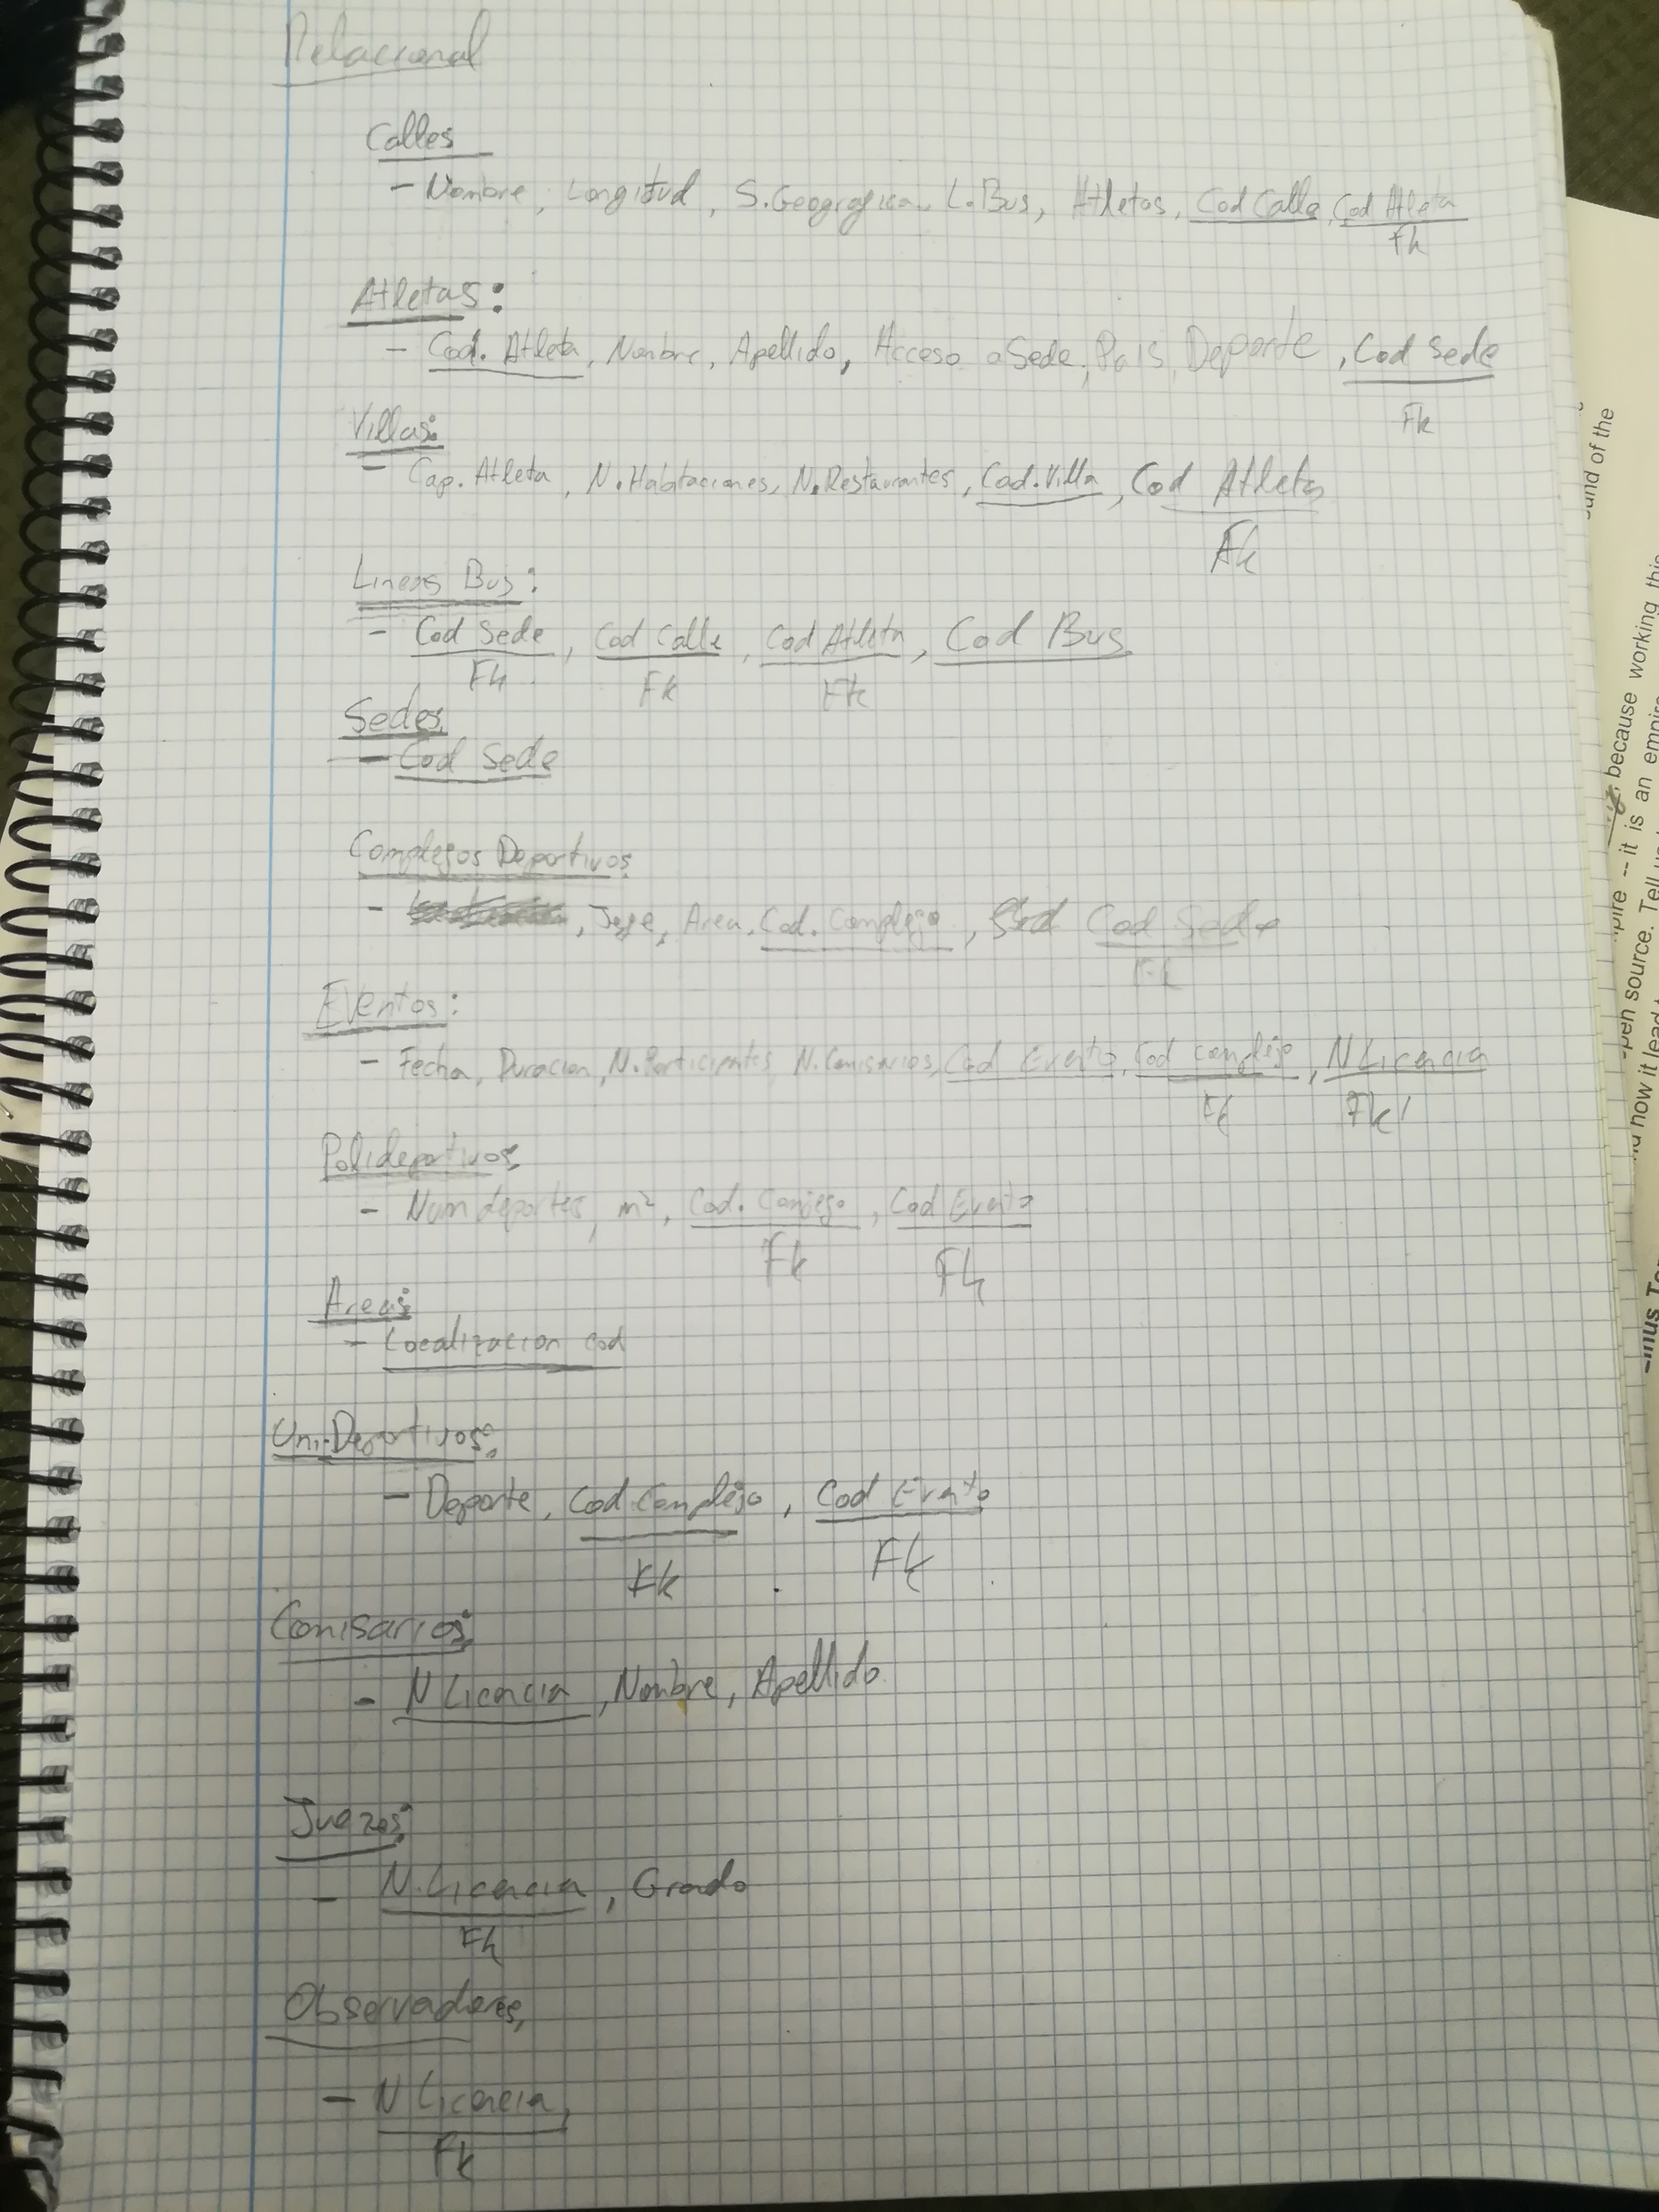 Relacional
Calles
- Nombre, Longitud, S.Geografica, L.Bus, Atletas, Cod Calle, Cod Atleta
Fk
Atletas:
- Cod. Atleta, Nombre, Apellido, Acceso a Sede, Pais, Deporte, Cod Sede
Fk
Villas:
- Cap. Atleta, N.Habitaciones, N.Restaurantes, Cod.Villa, Cod Atleta
Fk
Lineas Bus:
- Cod Sede, Cod Calle, Cod Atleta, Cod Bus
Fk Fk Fk
Sedes
- Cod Sede
Complejos Deportivos
- , Jefe, Area, Cod. Complejo, Cod Sede
Fk
Eventos:
- Fecha, Duracion, N.Participantes, N.Comisarios, Cod Evento, Cod complejo, N Licencia
Fk Fk
Polideportivos:
- Num deportes, m², Cod. Comjego, Cod Evento
Fk Fk
Areas:
- Localizacion cod
Uni-Deportivos:
- Deporte, Cod.Complejo, Cod Evento
Fk Fk
Comisarios:
- N Licencia, Nombre, Apellido
Juezes:
- N.Licencia, Grado
Fk
Observadores,
- N Licencia,
Fk
sund of the
because working this
pire -- it is an empire
open source. Tell us
how it lead